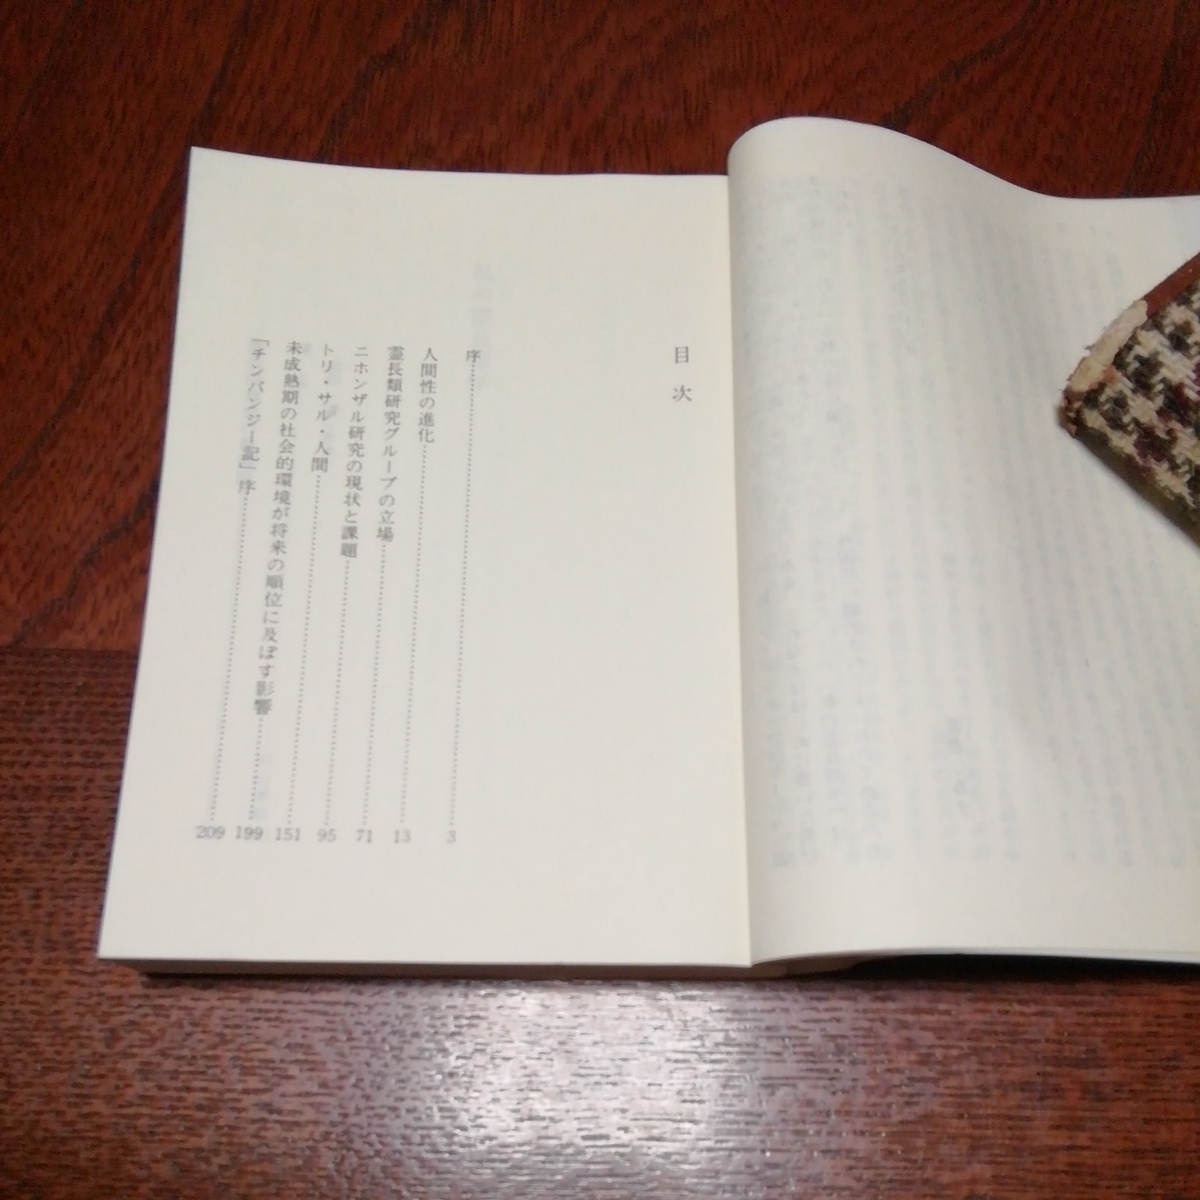 目次
序 3
人間性の進化 13
霊長類研究グループの立場 71
ニホンザル研究の現状と課題 95
トリ・サル・人間 151
未成熟期の社会的環境が将来の順位に及ぼす影響 199
「チンパンジー記」序 209